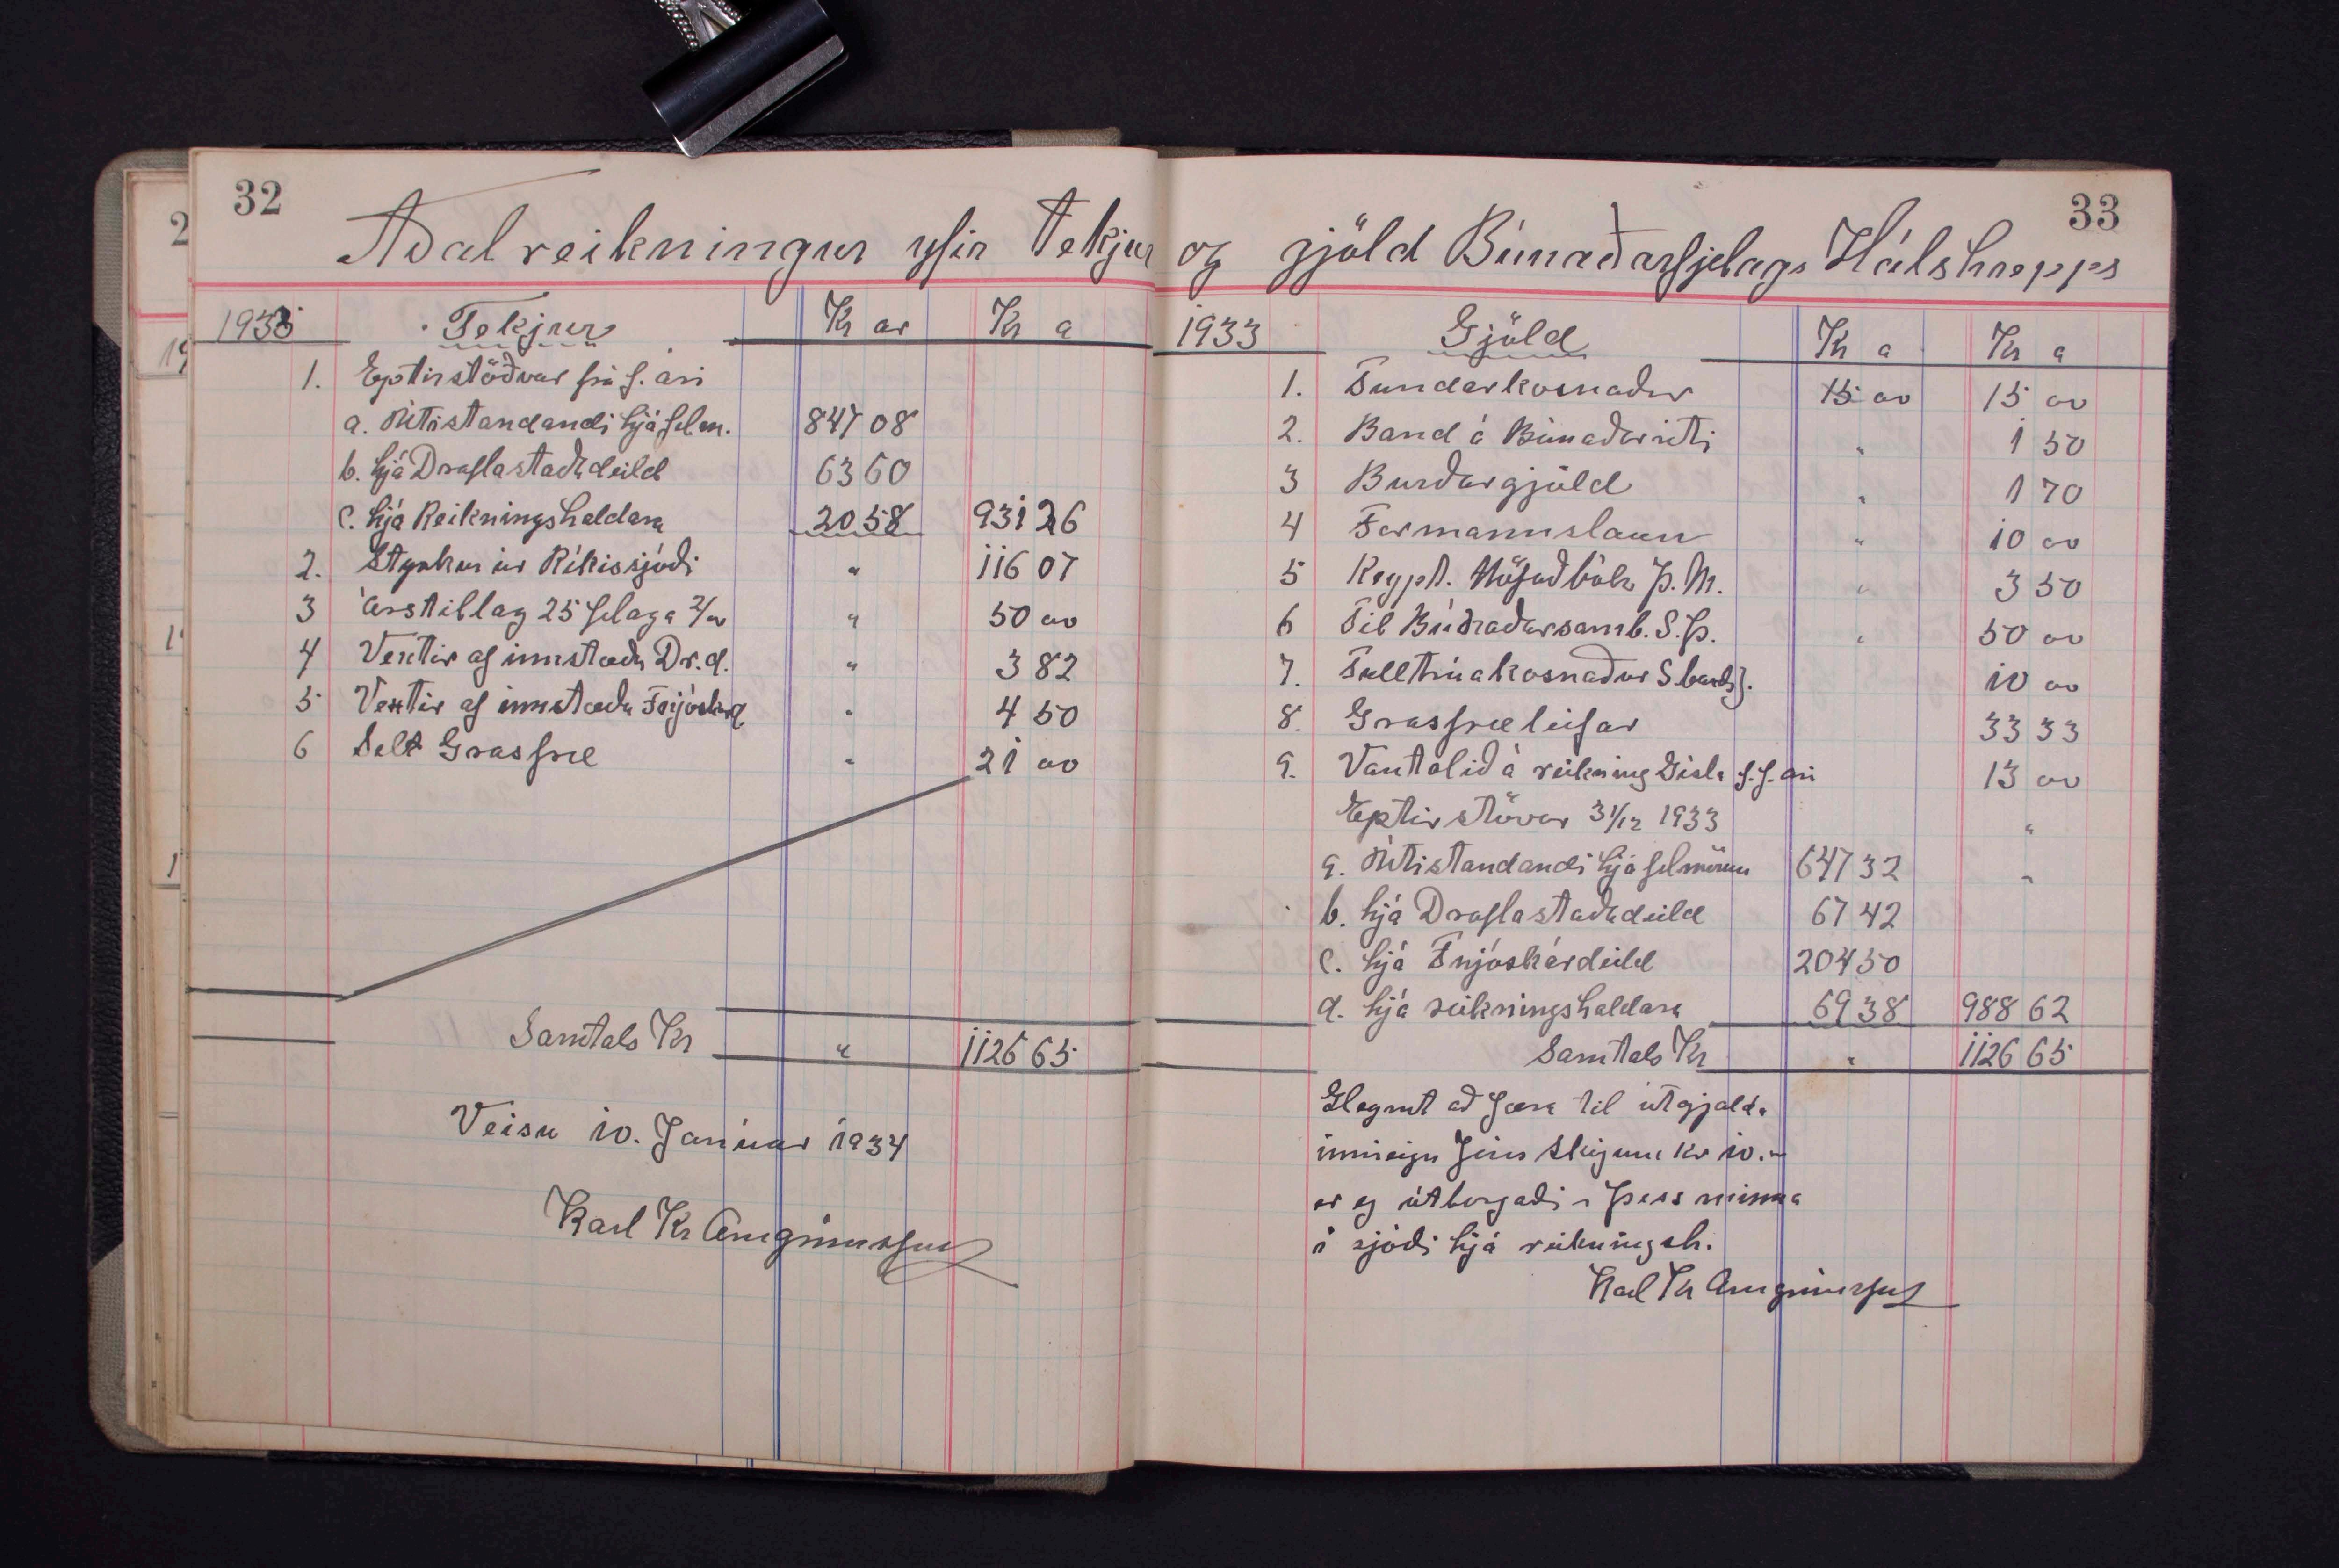 32
Aðalreikningur yfir Tekjur
1933 Tekjur Kr ar Kr a
1. Eptirstöðvar frá f. ári
a. Útistandandi hjá felm. 847 08
b. hjá Draflastaðadeild 63 60
c. hjá Reikningshaldara 20 58 931 26
2. Styrkur úr Ríkissjóði " 116 07
3 Árstillag 25 felaga 2/00 " 50 00
4 Vextir af innstæðu Dr.d. " 3 82
5 Vextir af innstæðu Fnjóskárd " 4 50
6 Selt Grasfræ " 21 00
Samtals Kr " 1126 65
Veisu 10. Janúar 1934
Karl Kr Arngrímsson
33
og gjöld Búnaðarfjelags Hálshrepps
1933 Gjöld Kr a Kr a
1. Fundarkosnaður 15 00 15 00
2. Band á Búnaðarriti " 1 50
3 Burðargjöld " 1 70
4 Formannslaun " 10 00
5 Keypt. Höfuðbók Þ.M. " 3 50
6 Til Búnaðarsamb. S.Þ. " 50 00
7. Fulltrúakosnaður 10 00
8. Grasfræleifar 33 33
9. Vantalið á reikning Gísla f.f. ári 13 00
Eptirstövar 31/12 1933 "
a. Útistandandi hjá felmönnum 647 32 "
b. hjá Draflastaðadeild 67 42
c. hjá Fnjóskárdeild 204 50
d. hjá reikningshaldara 69 38 988 62
Samtals Kr " 1126 65
Gleymt að færa til útgjalda
inneign Jóns kr 10.-
er eg útborgaði - þess minna
í sjóði hjá reikningsh.
Karl Kr Arngrímsson